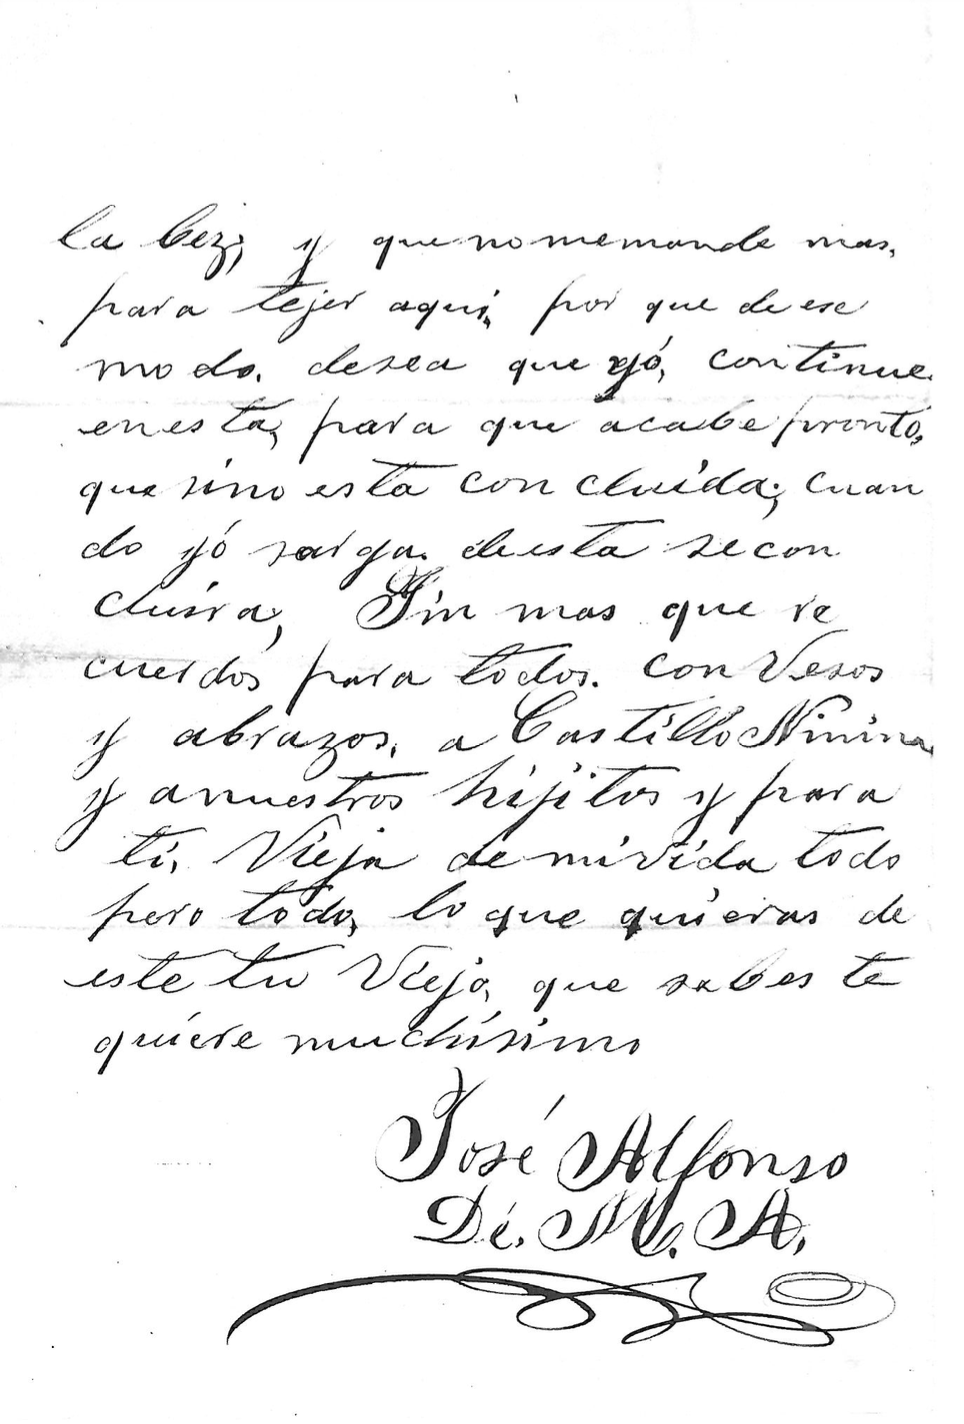 la bez; y que no me mande mas.
para tejer aquí, por que de ese
modo. desea que yó, continue.
en esta, para que acabe pronto,
que sino esta con cluida; cuan
do yó sarga. de esta se con
cluira, Sin mas que re
cuerdos para todos. con Vesos
y abrazos. a Castillo Ninina
y a nuestros hijitos y para
ti. Vieja de mi vida todo
pero todo, lo que quieras de
este tu Viejo, que sabes te
quiere muchísimo
José Alfonso
Dé. M. A.